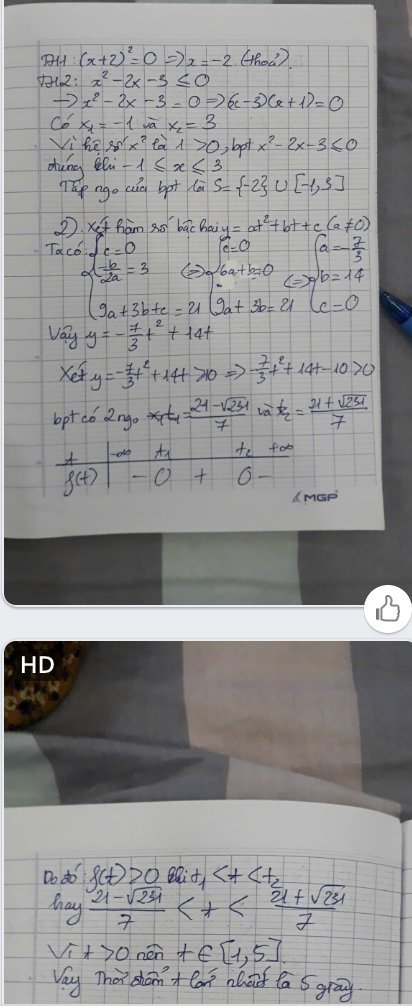 TH1: (x+2)² = 0 => x = -2 (thoả).
TH2: x² - 2x - 3 ≤ 0
→ x² - 2x - 3 = 0 => (x-3)(x+1) = 0
Có x₁ = -1 và x₂ = 3
Vì hệ số x² là 1 > 0, bpt x² - 2x - 3 ≤ 0
đúng khi -1 ≤ x ≤ 3
Tập ngo của bpt là S = {-2} U [-1,3]
2). Xét hàm số bậc hai y = at² + bt + c (a ≠ 0)
Ta có: { c = 0 { c = 0 { a = -7/3
{ -b/2a = 3 (=) { 6a + b = 0 (=) { b = 14
{ 9a + 3b + c = 21 { 9a + 3b = 21 { c = 0
Vậy y = -7/3 t² + 14t
Xét y = -7/3 t² + 14t > 10 => -7/3 t² + 14t - 10 > 0
bpt có 2 ngo t₁ = (21 - √231)/7 và t₂ = (21 + √231)/7
t -∞ t₁ t₂ +∞
f(t) - 0 + 0 -
MGP
HD
Do đó f(t) > 0 khi t₁ < t < t₂
hay (21 - √231)/7 < t < (21 + √231)/7
Vì t > 0 nên t ∈ [1,5]
Vậy thời điểm t lớn nhất là 5 giây.